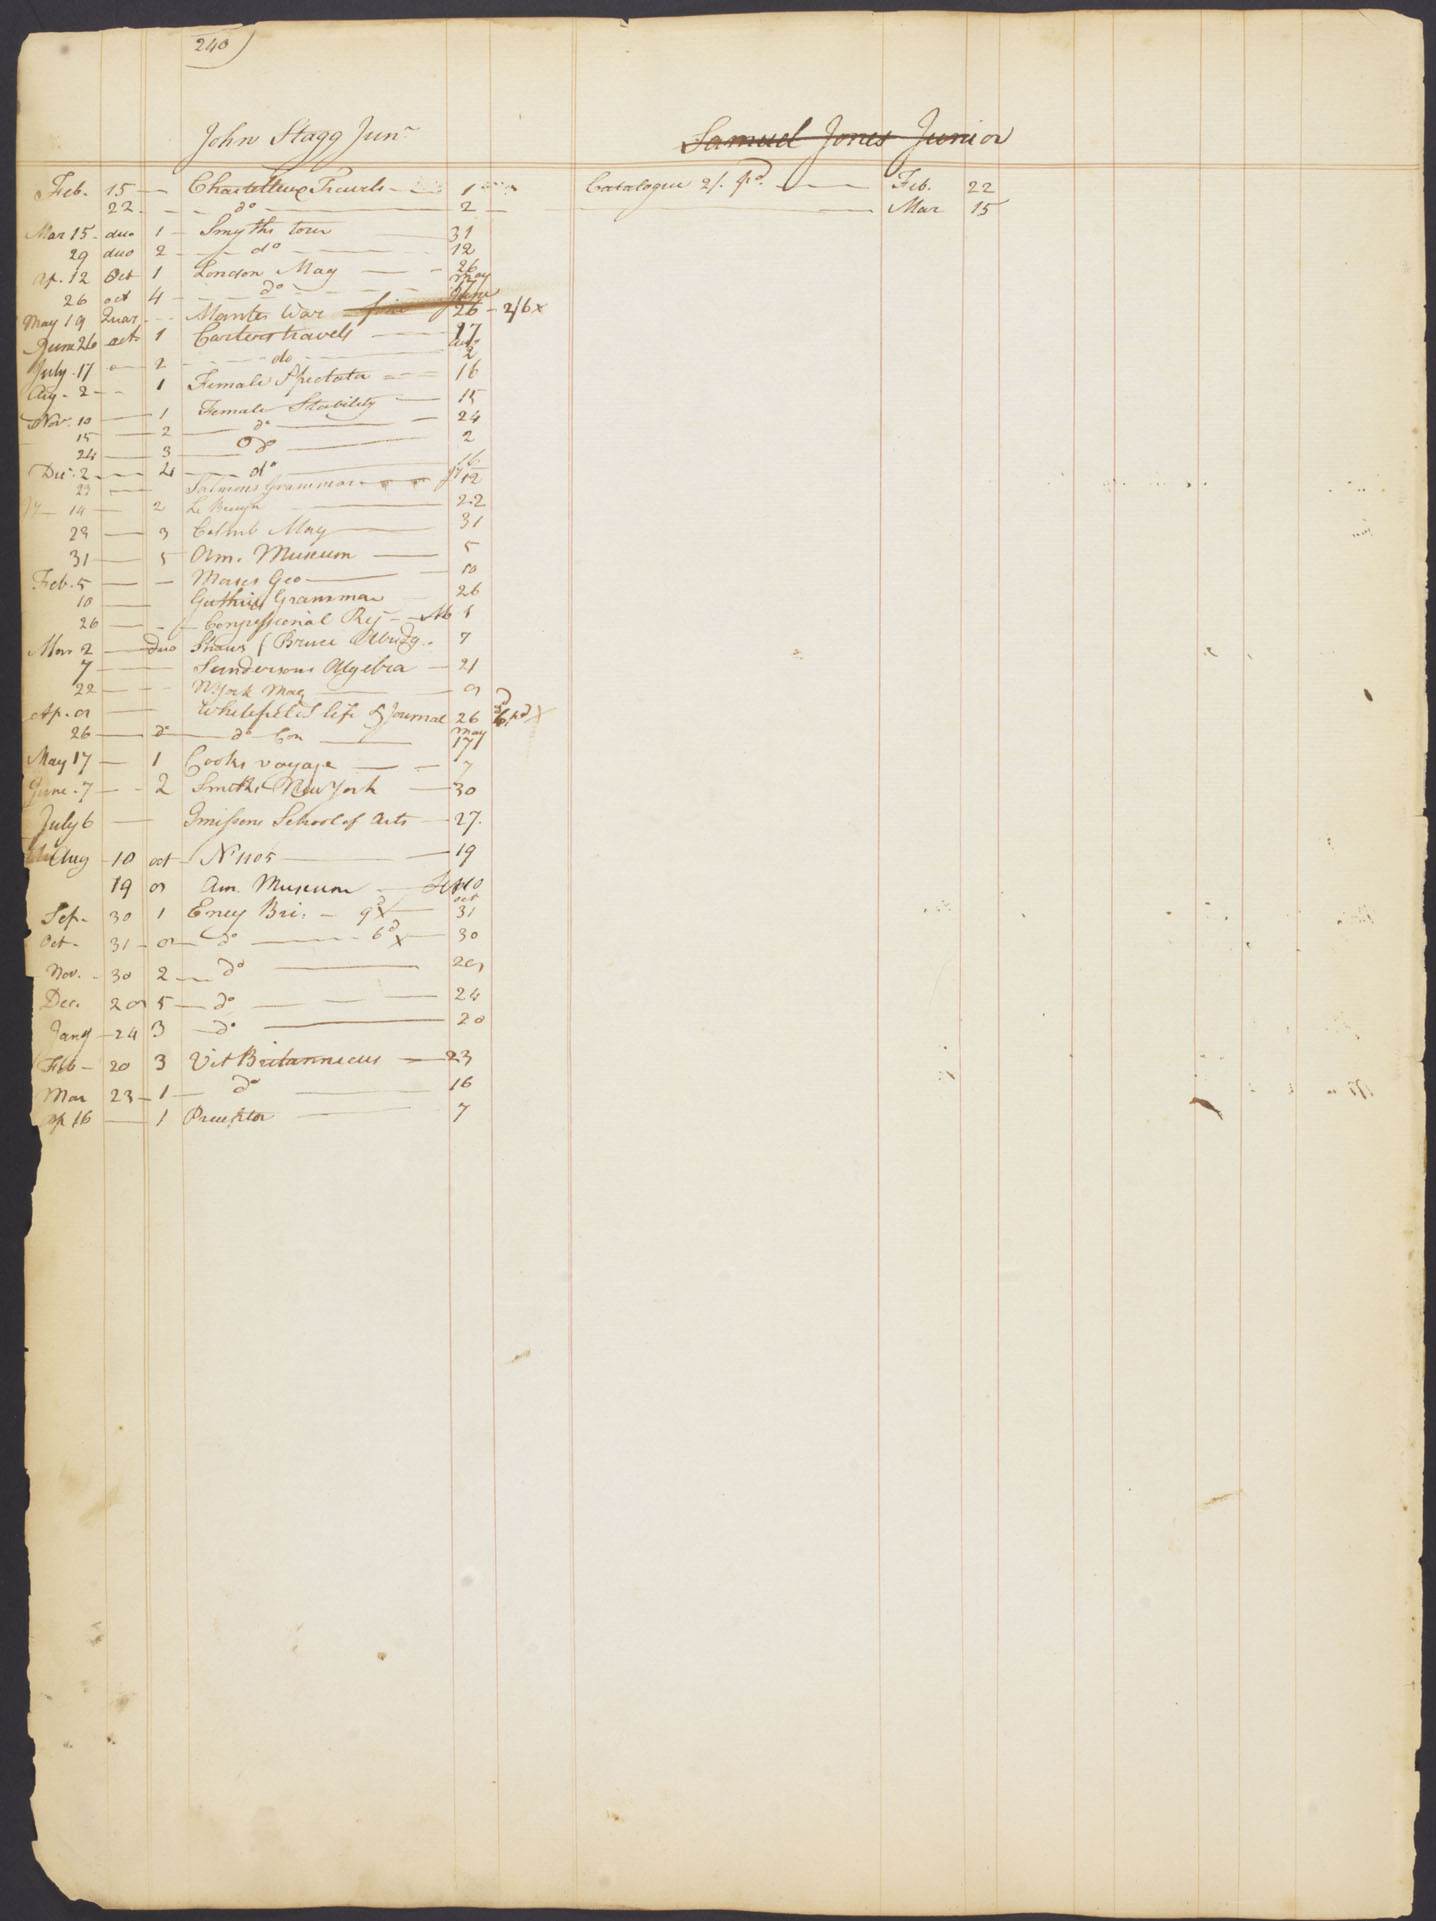 240
John Stagg Junr
Feb. 15 — Chastelleux Travels — 1
22 — do — 2 —
Mar 15 duo 1 — Smyths tour 31
29 duo 2 — do — 12
Ap. 12 Oct 1 London Mag — 26
26 oct 4 — do — May 17
May 19 Quar — Mantes War fine June 26 — 2/6 x
June 26 oct 1 Carters travels — 17
July 17 — 2 — do — Aug 2
Aug. 2 — 1 Female Spectator — 16
Nov. 10 — 1 Female Stability — 15
15 — 2 — do — 24
24 — 3 — do — 2
Dec. 2 — 4 — do — 16
23 — Salmons Grammar — 12
14 — 2 Le Bruyn — 22
23 — 3 Columb Mag — 31
31 — 5 Am. Museum — 5
Feb. 5 — — Morses Geo — 10
10 — Guthries Grammar — 26
26 — Congressional Reg — 1
Mar 2 — duo Shaws (Bruce Abridg. 7
7 — Sundersons Algebra — 21
22 — N. York Mag — 9
Ap. 9 — Whitefields life & Journal 26 6 pd x
26 — do — do Con — May 17
May 17 — 1 Cooks voyage — 7
June 7 — 2 Smiths New York — 30
July 6 — Imisons School of Arts — 27.
Aug — 10 oct — No 1105 — 19
19 9 Am. Museum — Sep 10
Sep. 30 1 Ency Bri. — 9d x — oct 31
Oct. 31 — 9 — do — 6d x — 30
Nov. — 30 2 — do — 29
Dec. 29 5 — do — 24
Jany — 24 3 — do — 20
Feb — 20 3 Vit Britannicus — 23
Mar 23 — 1 — do — 16
Ap 16 — 1 — 7
Samuel Jones Junior
Catalogue 2/. pd. — Feb. 22
— Mar 15